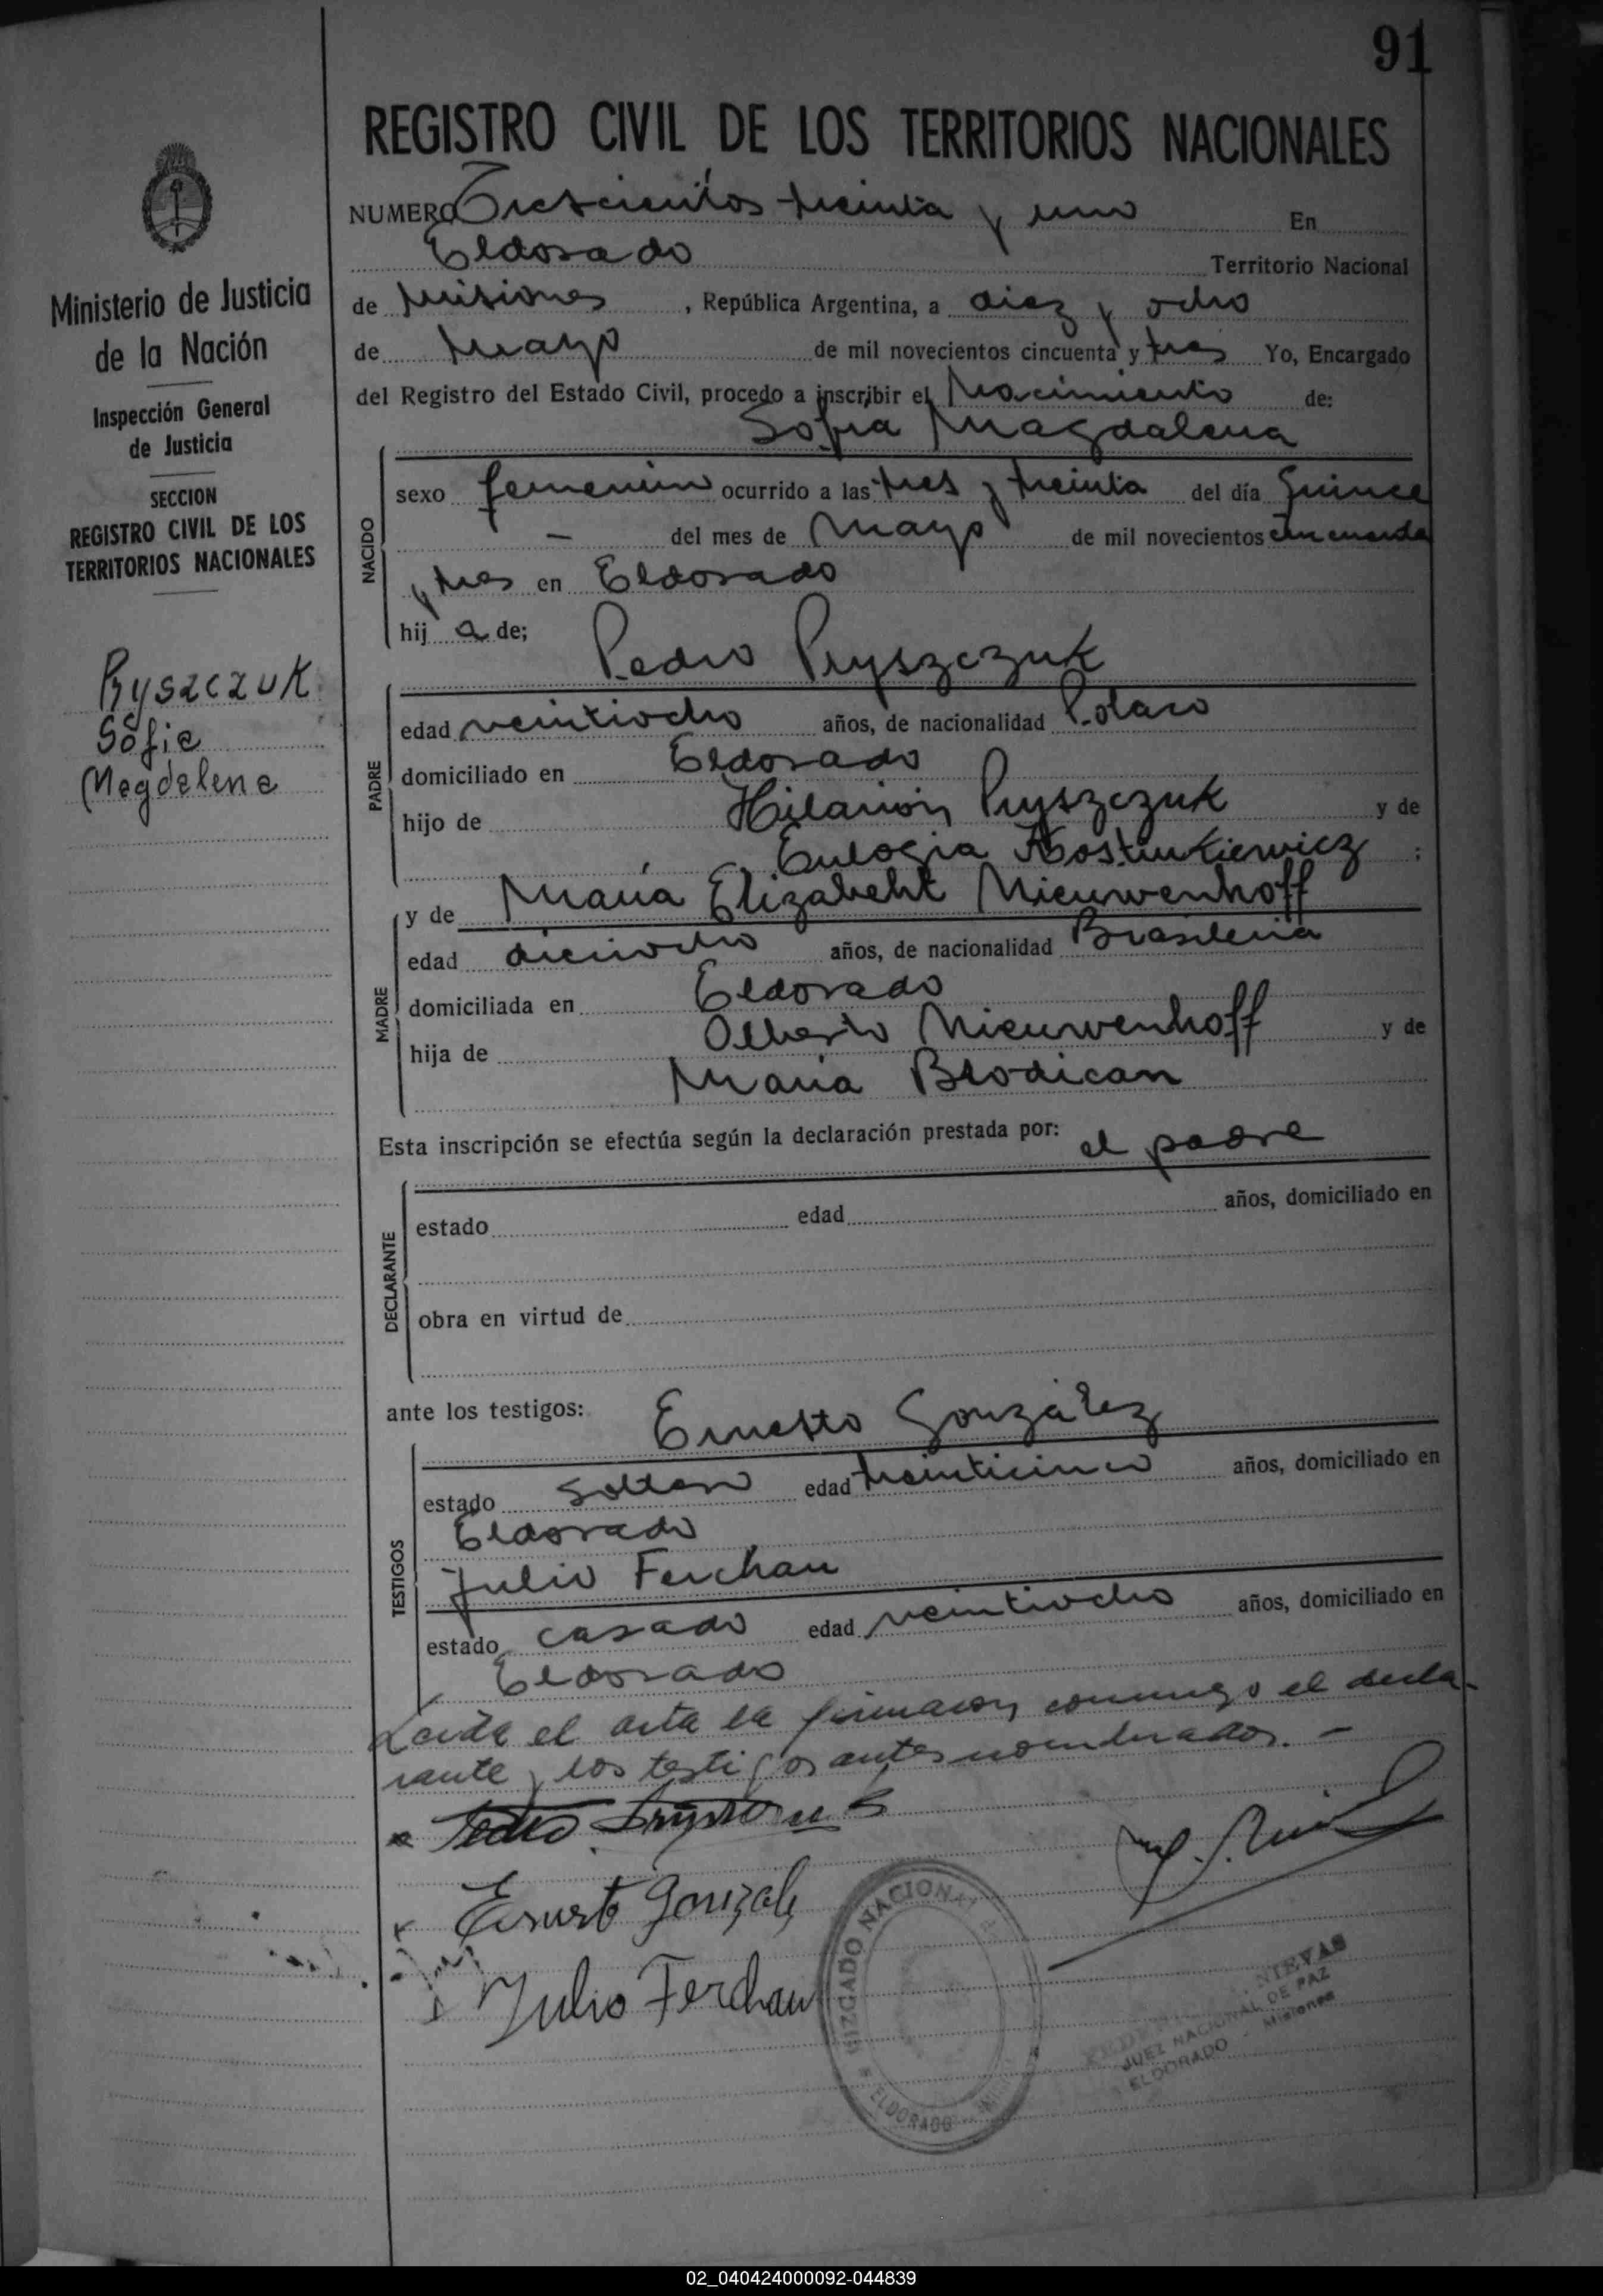 91
REGISTRO CIVIL DE LOS TERRITORIOS NACIONALES
NUMERO Trescientos treinta y uno En
Eldorado Territorio Nacional
de Misiones, República Argentina, a diez y ocho
de Mayo de mil novecientos cincuenta y tres Yo, Encargado
del Registro del Estado Civil, procedo a inscribir el Nacimiento de:
Sofia Magdalena
NACIDO
sexo femenino ocurrido a las tres y treinta del día Quince
— del mes de Mayo de mil novecientos cincuenta
y tres en Eldorado
hij a de;
Pedro Pryszczuk
PADRE
edad veintiocho años, de nacionalidad Polaco
domiciliado en Eldorado
hijo de Hilarion Pryszczuk y de
Eulogia Kostiukiewicz ;
MADRE
y de María Elizabeht Nieuwenhoff
edad dieciocho años, de nacionalidad Brasileña
domiciliada en Eldorado
hija de Alberto Nieuwenhoff y de
María Blodican
Esta inscripción se efectúa según la declaración prestada por: el padre
DECLARANTE
estado edad años, domiciliado en
obra en virtud de
ante los testigos: Ernesto González
TESTIGOS
estado soltero edad treinticinco años, domiciliado en
Eldorado
Julio Ferchau
estado casado edad veintiocho años, domiciliado en
Eldorado
Leida el acta la firmaron conmigo el decla-
rante y los testigos antes nombrados. —
Pedro
Ernesto Gonzalez
Julio Ferchau
JUZGADO NACIONAL
ELDORADO
NIEVAS
JUEZ NACIONAL DE PAZ
ELDORADO - Misiones
Ministerio de Justicia
de la Nación
Inspección General
de Justicia
SECCION
REGISTRO CIVIL DE LOS
TERRITORIOS NACIONALES
Pryszczuk
Sofia
Magdalena
02_040424000092-044839